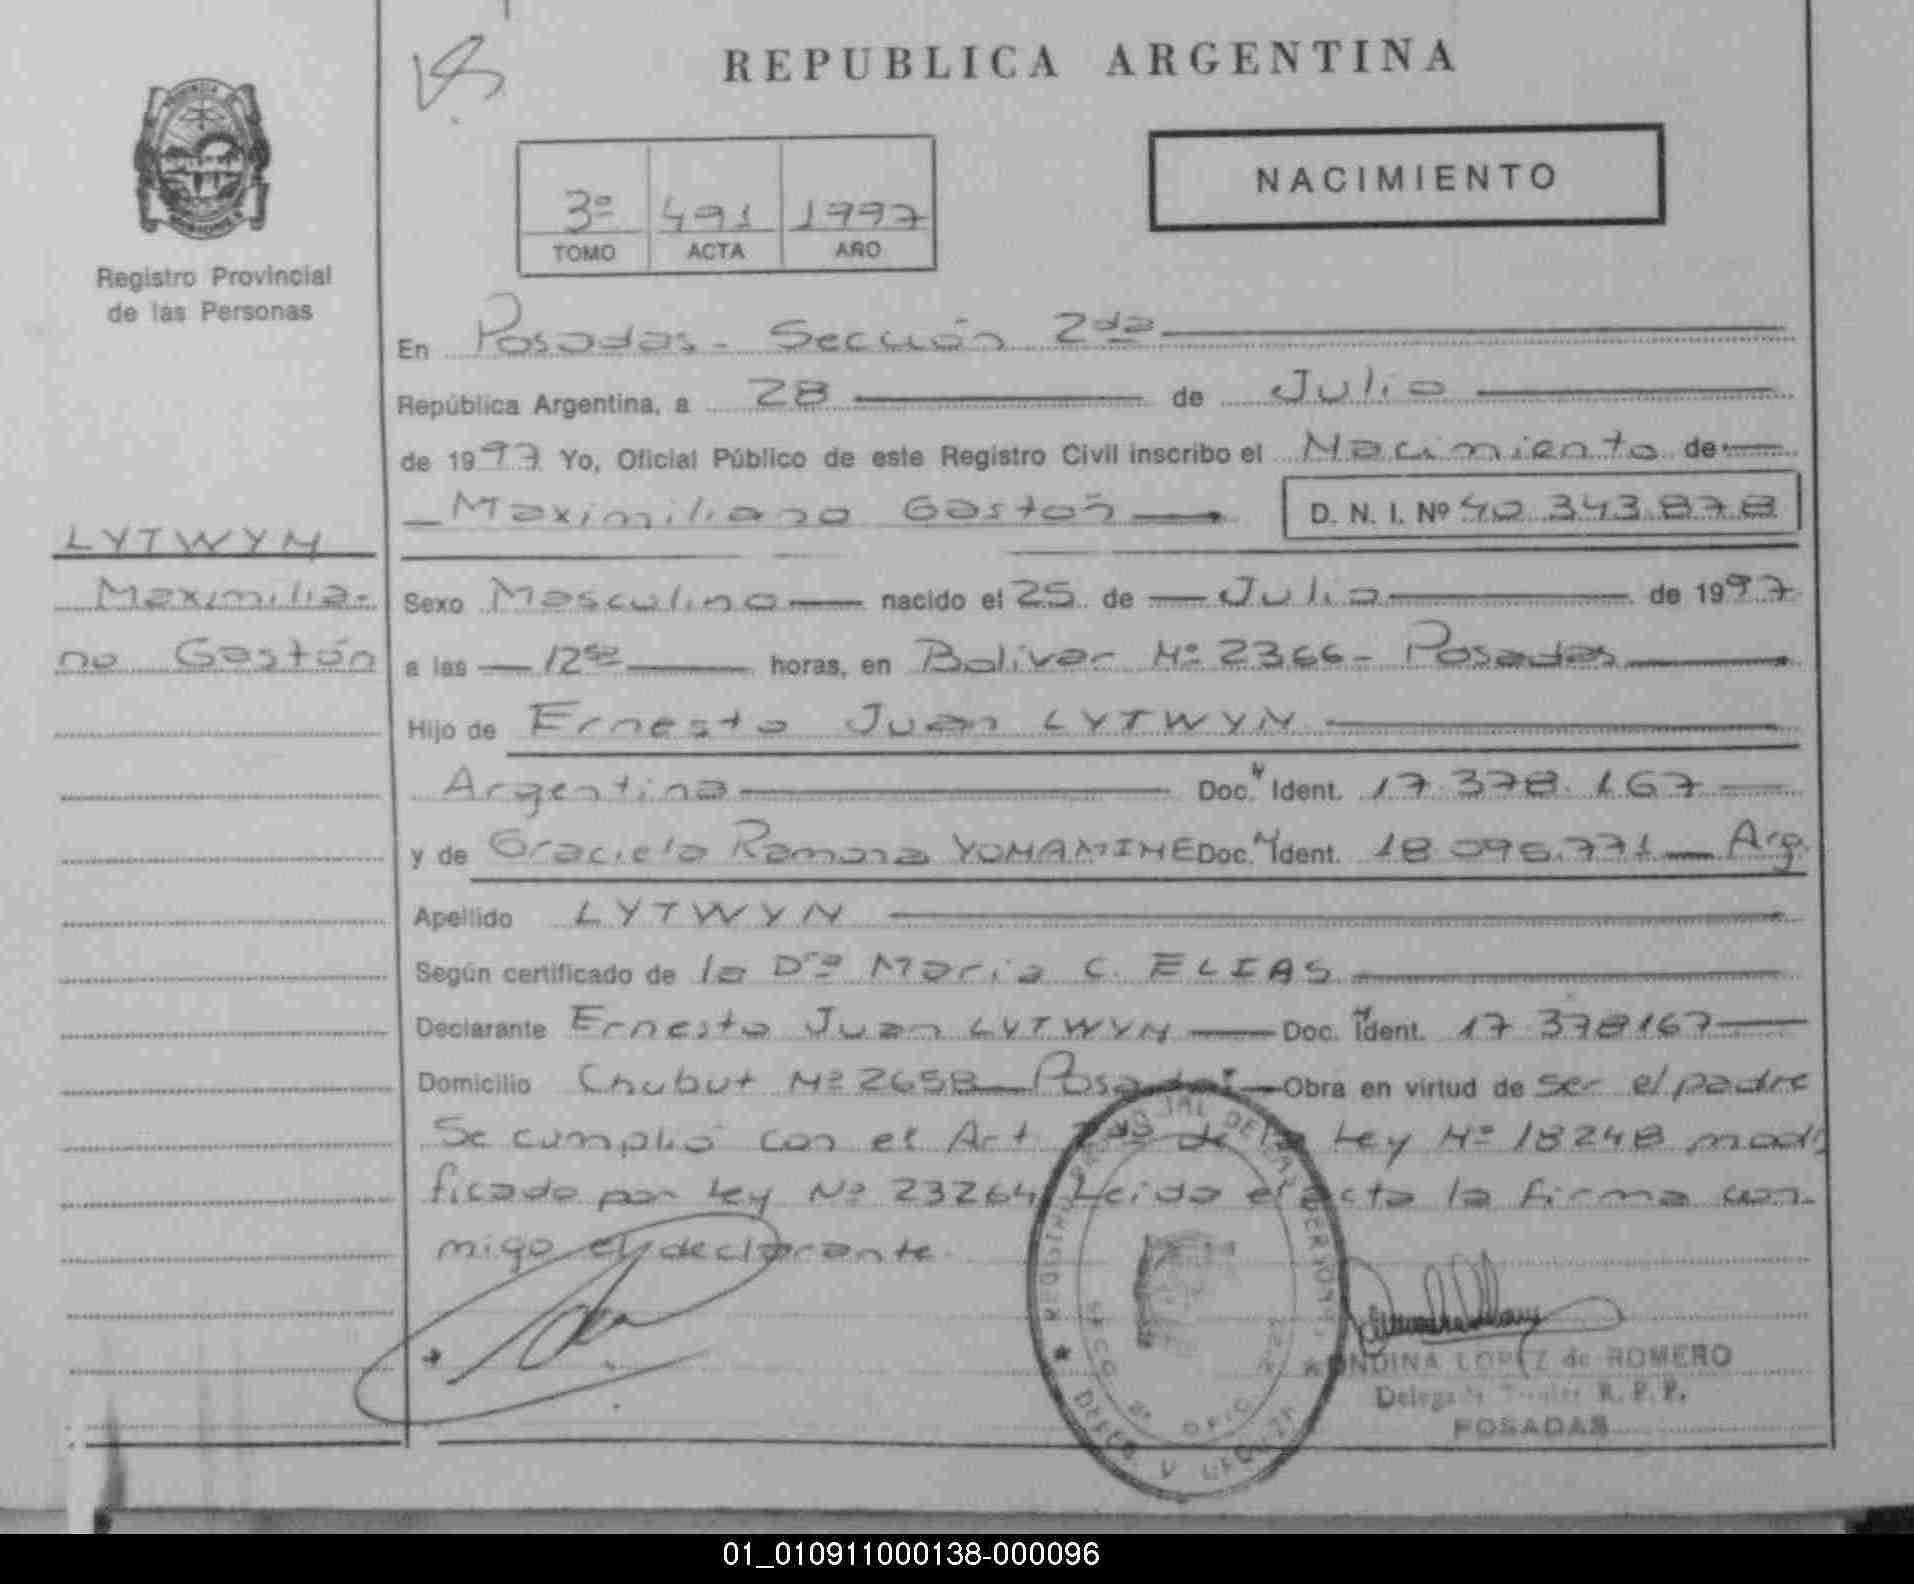 REPUBLICA ARGENTINA
NACIMIENTO
3º 491 1997
TOMO ACTA AÑO
Registro Provincial
de las Personas
En Posadas - Sección 2da
República Argentina, a 28 de Julio
de 1997 Yo, Oficial Público de este Registro Civil inscribo el Nacimiento de
Maximiliano Gastón D. N. I. Nº 40.343.878
LYTWYN
Maximilia-
no Gastón
Sexo Masculino nacido el 25 de Julio de 1997
a las 12 50 horas, en Bolivar Nº 2366 - Posadas
Hijo de Ernesto Juan LYTWYN
Argentina Doc. N Ident. 17.378.167
y de Graciela Ramona YONAMINE Doc. N Ident. 18.096.771 Arg.
Apellido LYTWYN
Según certificado de la Dra Maria C. ELIAS
Declarante Ernesto Juan LYTWYN Doc. N Ident. 17 378167
Domicilio Chubut Nº 2658 Posadas Obra en virtud de ser el padre
Se cumplió con el Art de la Ley Nº 18248 modi
ficado por Ley Nº 23264 Leida el acta la firma con-
migo el declarante
REGISTRO PROVINCIAL DE LAS PERSONAS
SECC 2ª OFIC
ONDINA LOPEZ de ROMERO
Delegada Titular R. P. P.
POSADAS
01_010911000138-000096